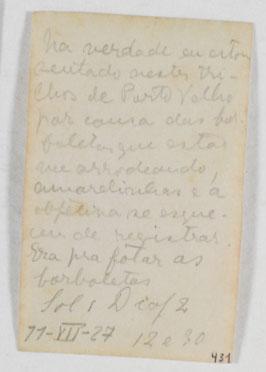 Na verdade eu estou
sentado nestes tri-
lhos de Porto Velho
por causa das bor-
boletas que estão
me arrodeando,
amarelinhas e a
objetiva se esque-
ceu de registrar.
Era pra fotar as
borboletas
Sol 1 Diaf 2
11-VII-27 12 e 30
431